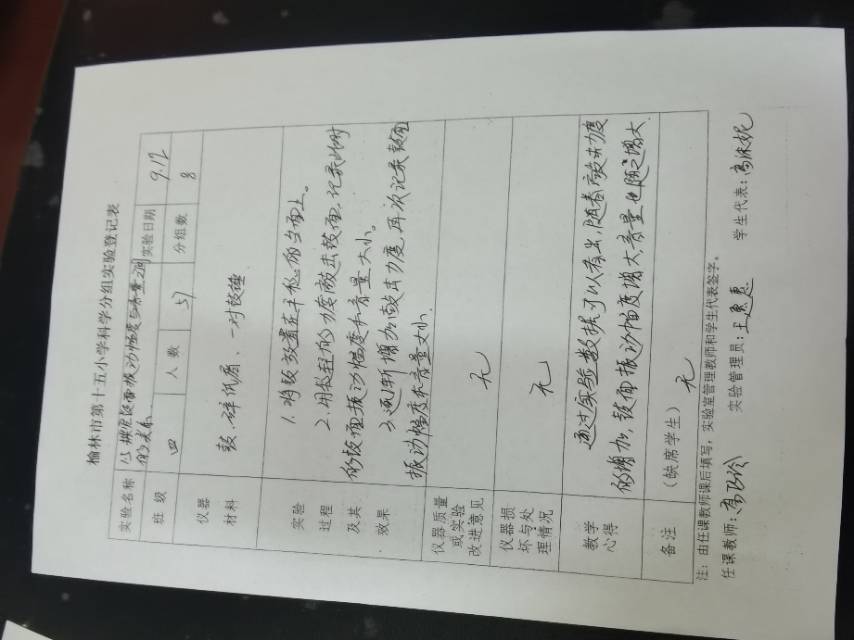 榆林市第十五小学科学分组实验登记表
实验名称 探究鼓面振动幅度与音量之间的关系. 实验日期 9.12
班级 四 人数 51 分组数 8
仪器材料 鼓、碎纸屑、一对鼓锤
实验过程及其效果
1. 将鼓放置在平稳的台面上。
2. 用轻的力度敲击鼓面,记录此时
的鼓面振动幅度和音量大小。
3. 逐渐增加敲击力度,再次记录鼓面
振动幅度和音量大小.
仪器质量或实验改进意见 无
仪器损坏与处理情况 无
教学心得 通过实验数据可以看出,随着敲击力度
的增加,鼓面振动幅度增大,音量也随之增大
备注 (缺席学生) 无
注:由任课教师课后填写,实验室管理教师和学生代表签字。
任课教师: 实验管理员:王惠惠 学生代表: